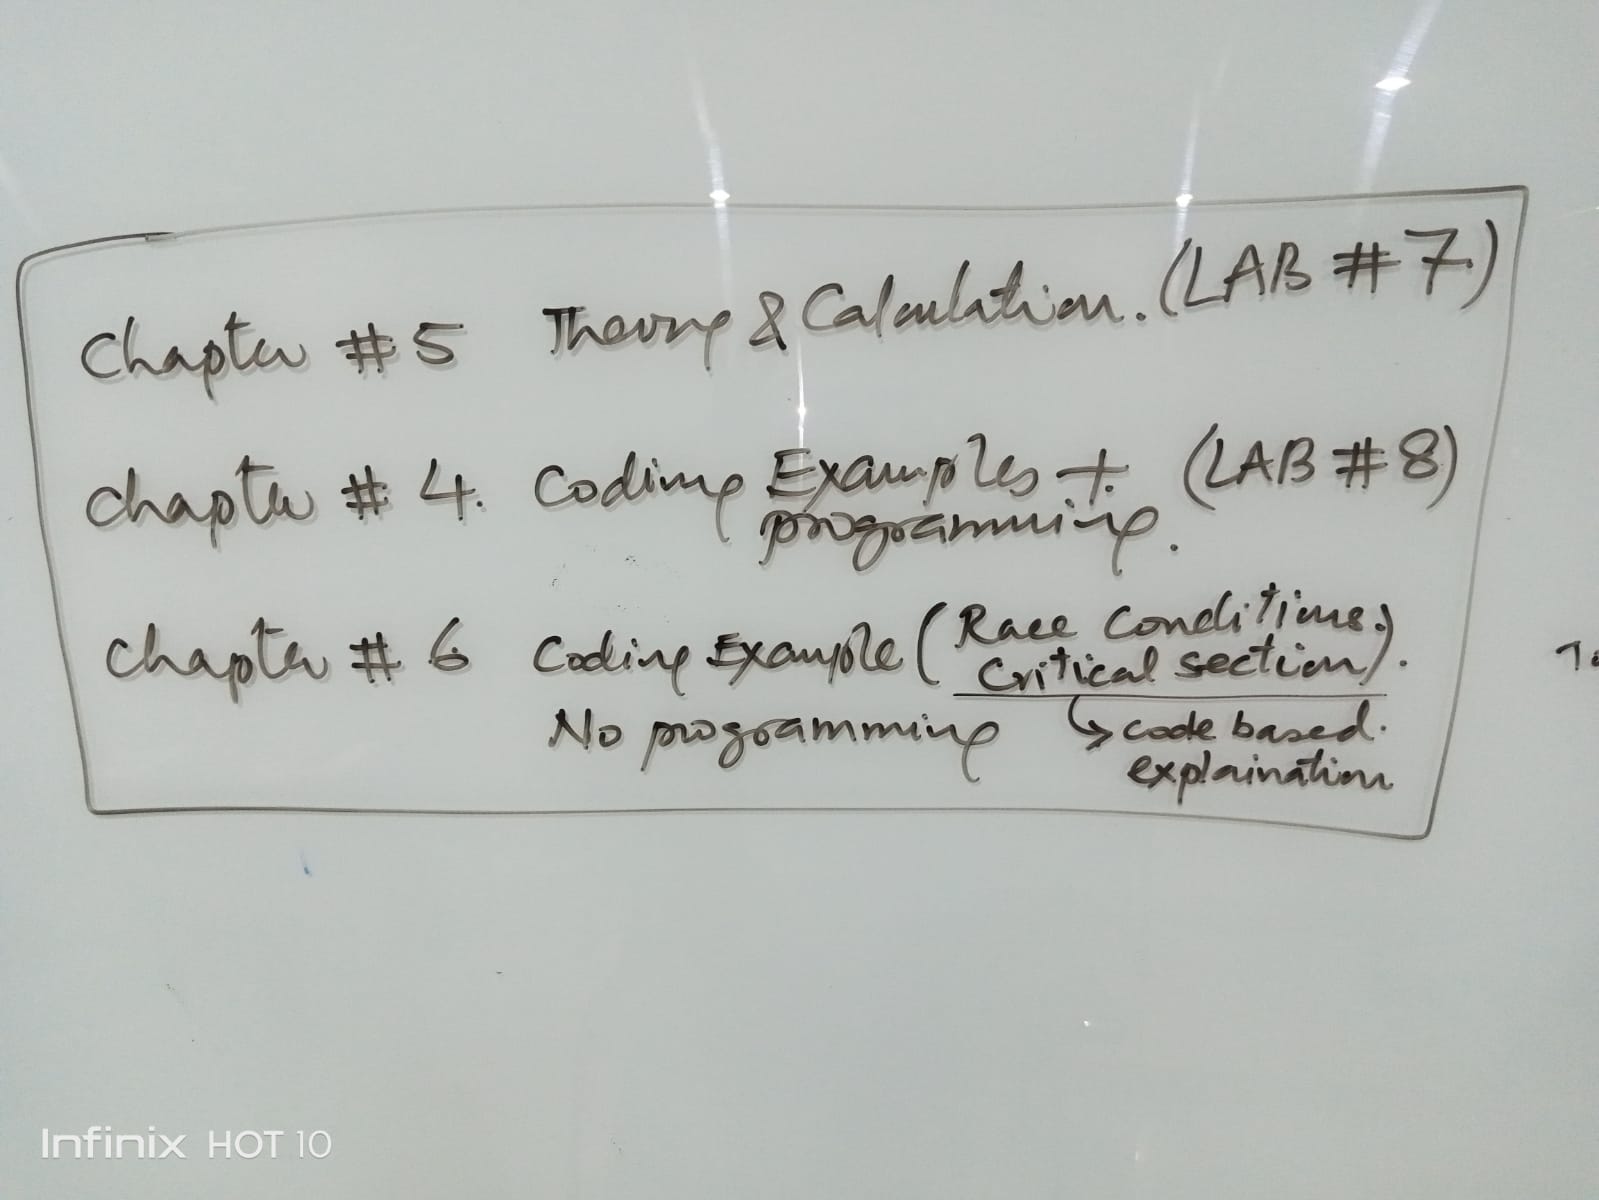 Chapter # 5 Theory & Calculation. (LAB # 7)
Chapter # 4. Coding Examples + (LAB # 8)
programming.
Chapter # 6 Coding Example (Race Conditions.
Critical section).
No programming ↳ code based.
explaination
Infinix HOT 10